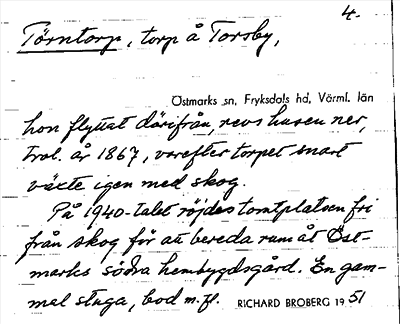 4.
Törntorp, torp å Torsby,
Östmarks sn, Fryksdals hd, Värml. län
hon flyttat därifrån, revs husen ner,
trol. år 1867, varefter torpet snart
växte igen med skog.
På 1940-talet röjdes tomtplatsen fri
från skog för att bereda rum åt Öst-
marks södra hembygdsgård. En gam-
mal stuga, bod m.fl. RICHARD BROBERG 1951